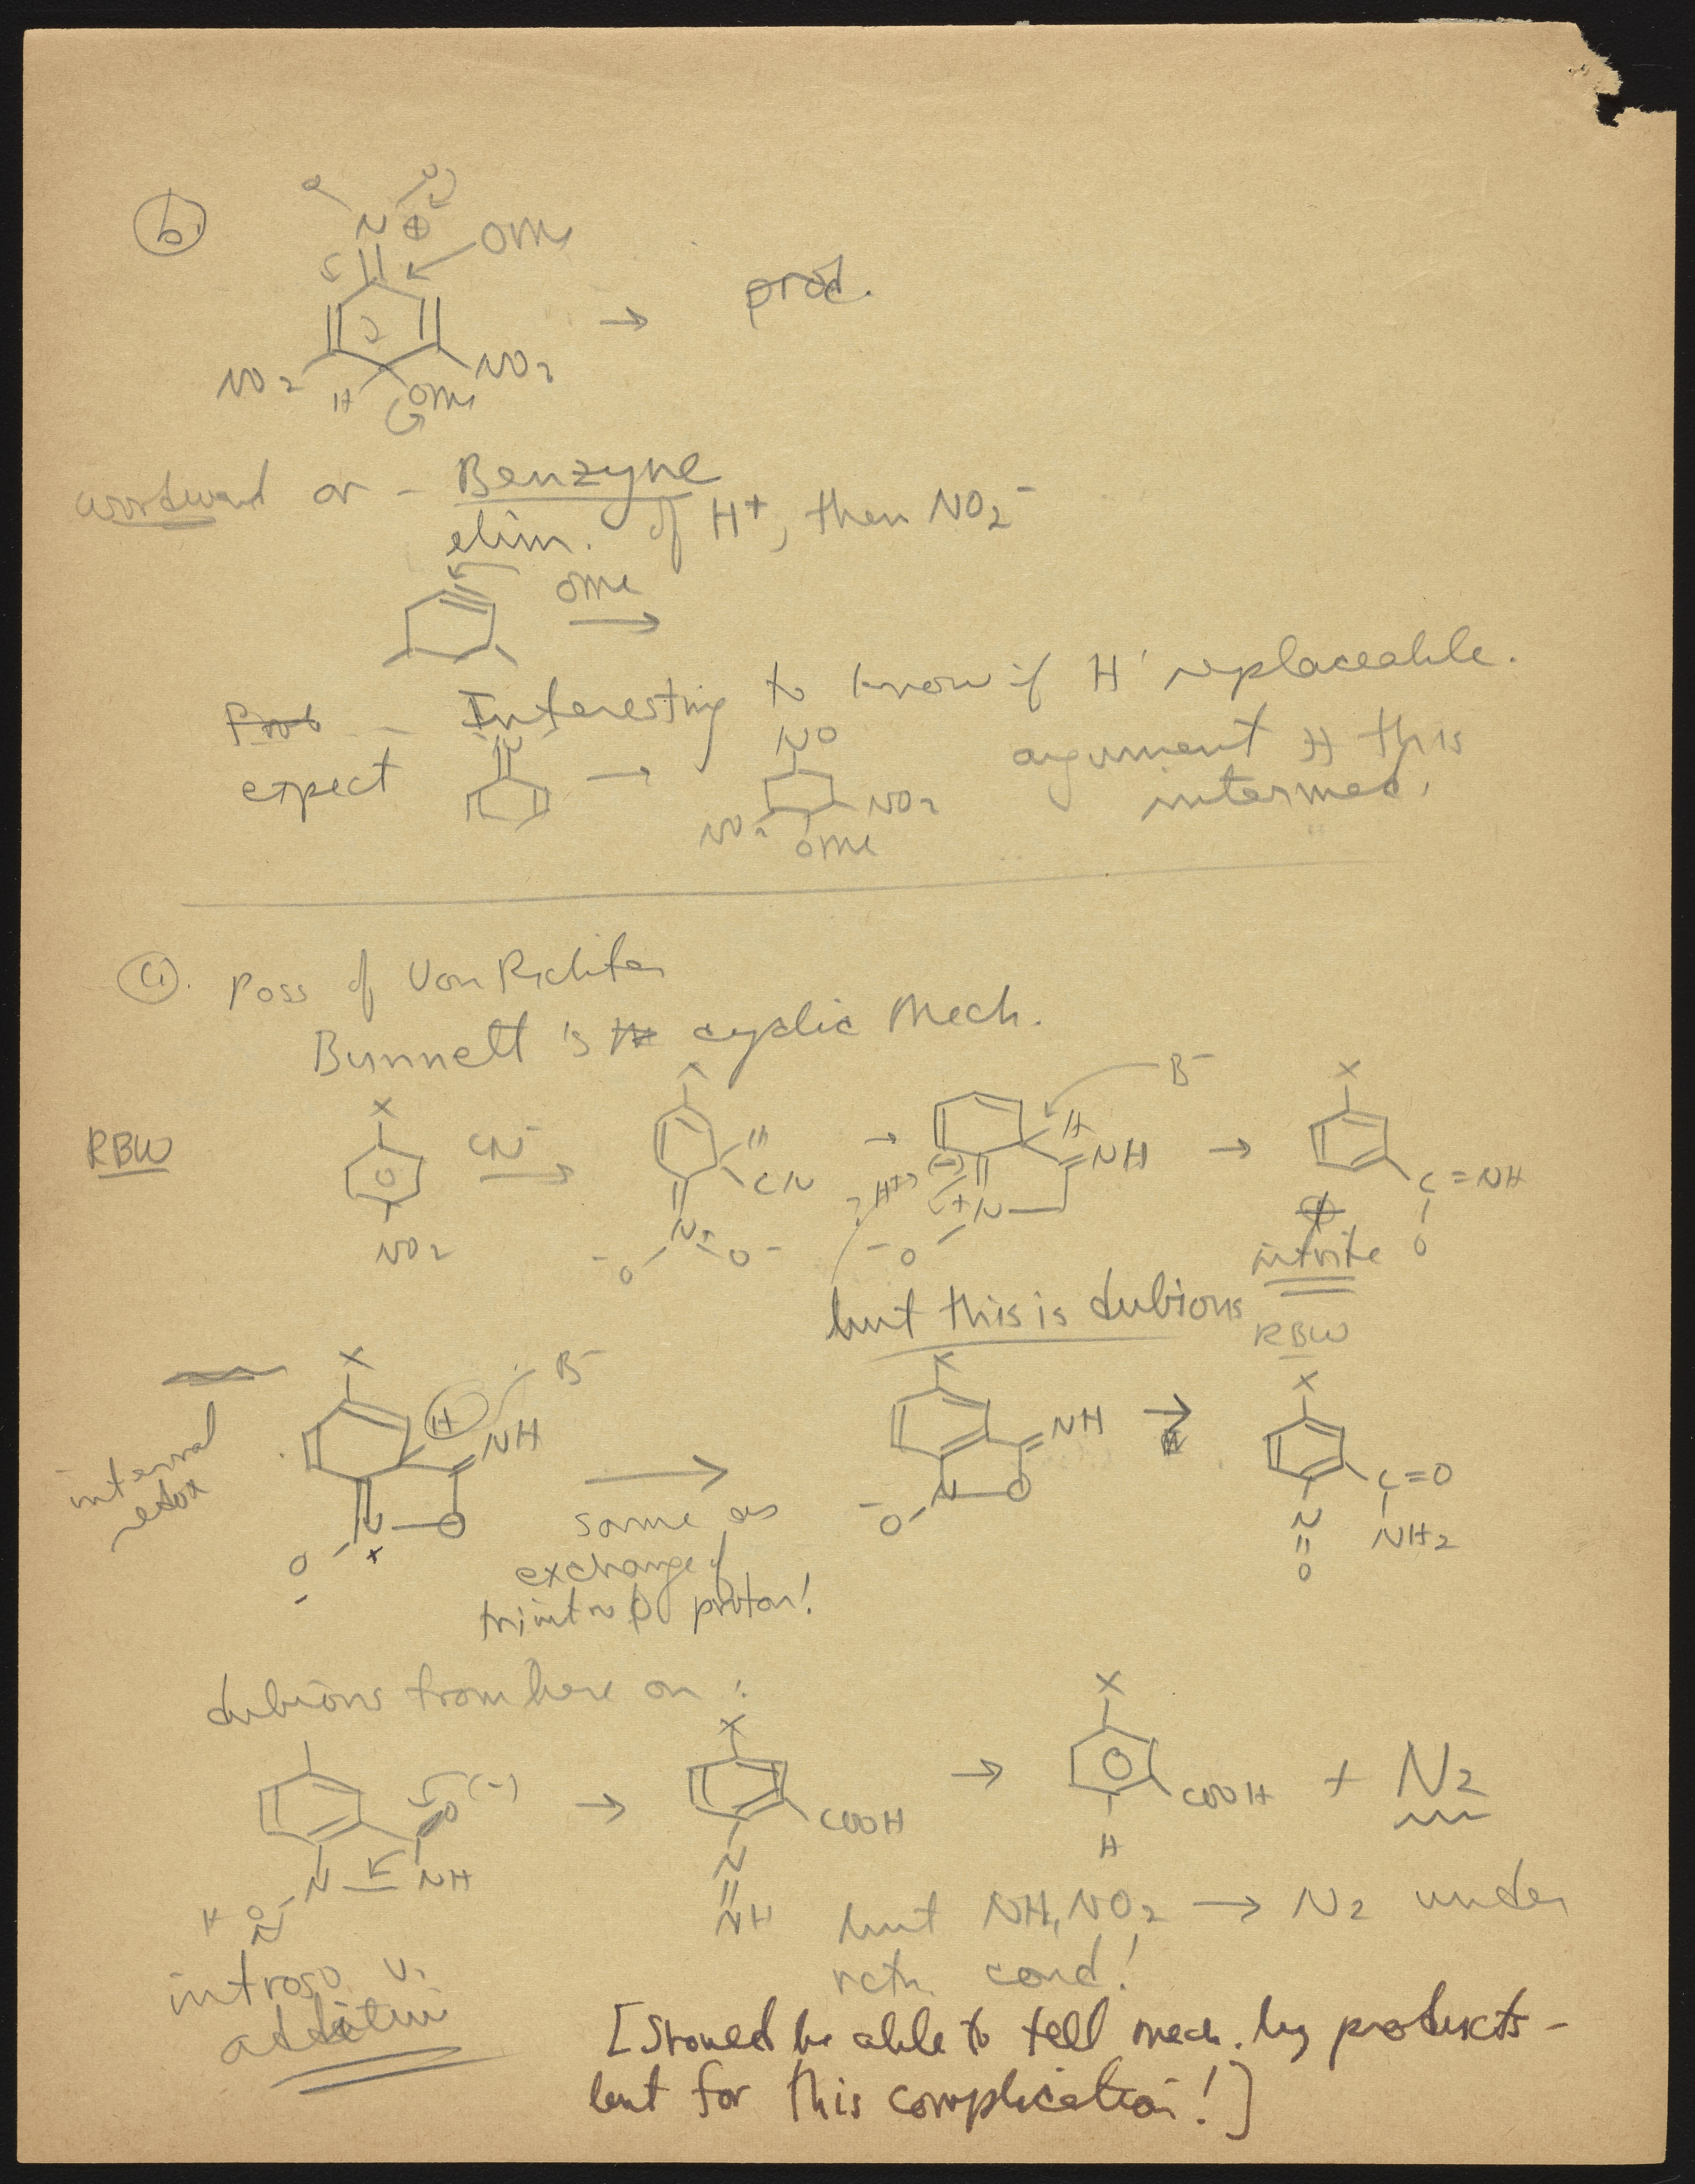 b.
O O
N ⊕ OMe
→ prod.
NO2 H OMe NO2
Woodward or - Benzyne
elim. of H+, then NO2-
OMe
→
Prob - Interesting to know if H' replaceable.
expect N → NO NO2 NO2 OMe argument H this
intermed.
c. Poss of Von Richter
Bunnett's cyclic Mech.
RBW X NO2 CN- → X H CN N+ -O O- → H NH B- +N -O (-) ? H+? → X C=NH O
nitrite
but this is dubious
RBW
internal
redox
X H NH B- N O + O - → X NH N O -O → X C=O NH2 N=O
same as
exchange of
trinitro proton!
dubious from here on :
O (-) N NH H O → X COOH N=NH → X COOH H + N2
nitroso
addition
but NH2NO2 → N2 under
rctn cond!
[Should be able to tell mech. by products -
but for this complication!]